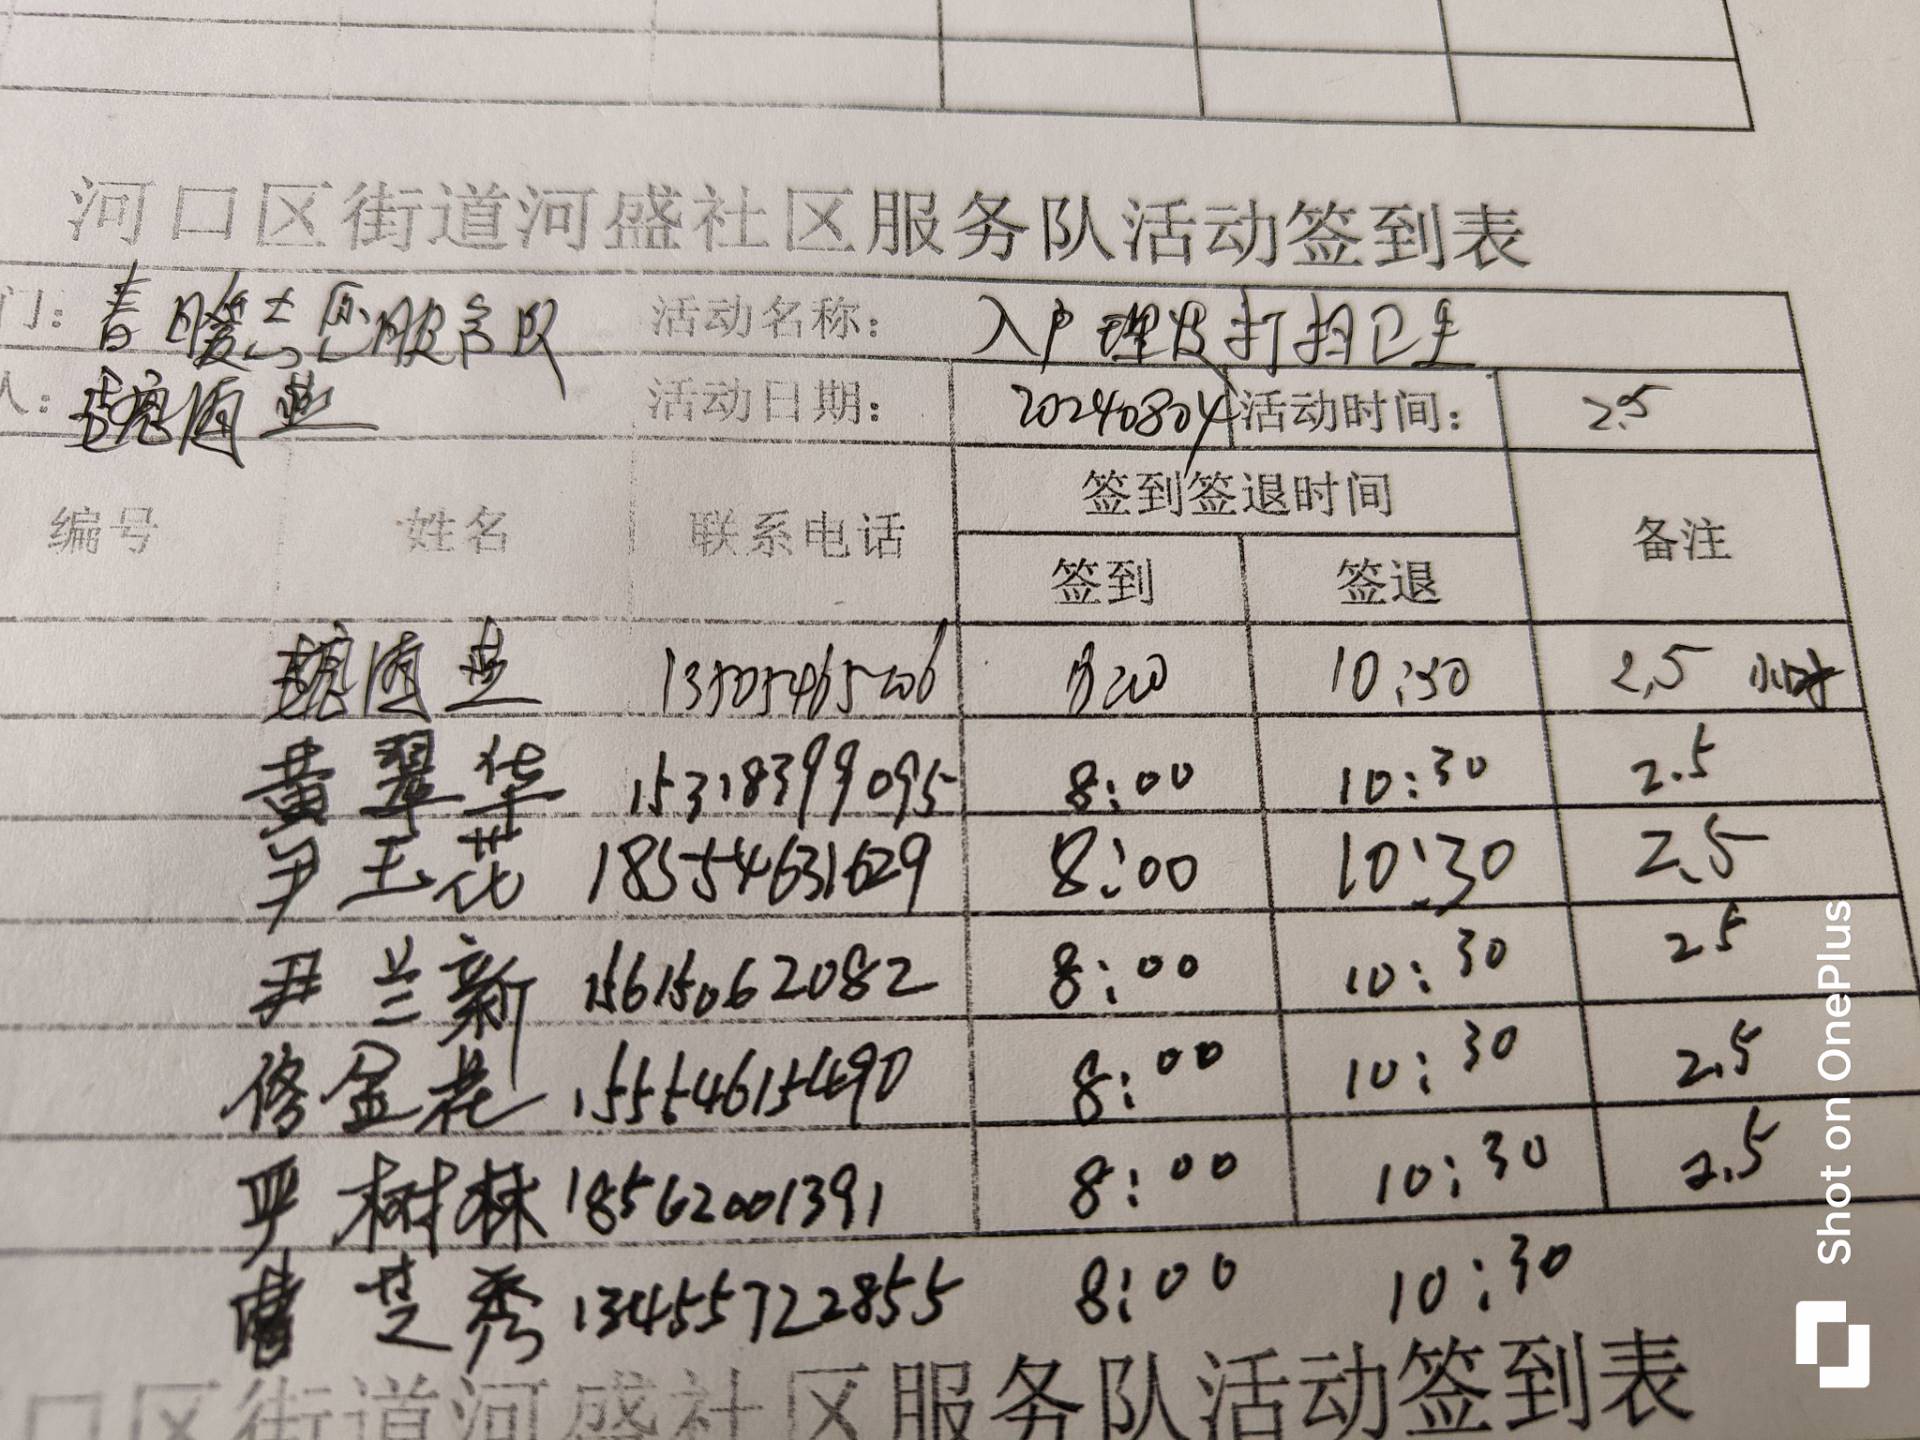 河口区街道河盛社区服务队活动签到表
门: 春暖志愿服务队 活动名称: 入户理发打扫卫生
人: 魏海燕 活动日期: 20240804 活动时间: 2.5
编号 姓名 联系电话 签到签退时间 备注
签到 签退
魏海燕 13505465206 8:00 10:30 2.5 小时
黄翠华 15318399095 8:00 10:30 2.5
尹玉花 18554631629 8:00 10:30 2.5
尹兰新 15615062082 8:00 10:30 2.5
修金花 15554615490 8:00 10:30 2.5
严树林 18562001391 8:00 10:30 2.5
芝秀 13455722855 8:00 10:30
口区街道河盛社区服务队活动签到表
Shot on OnePlus